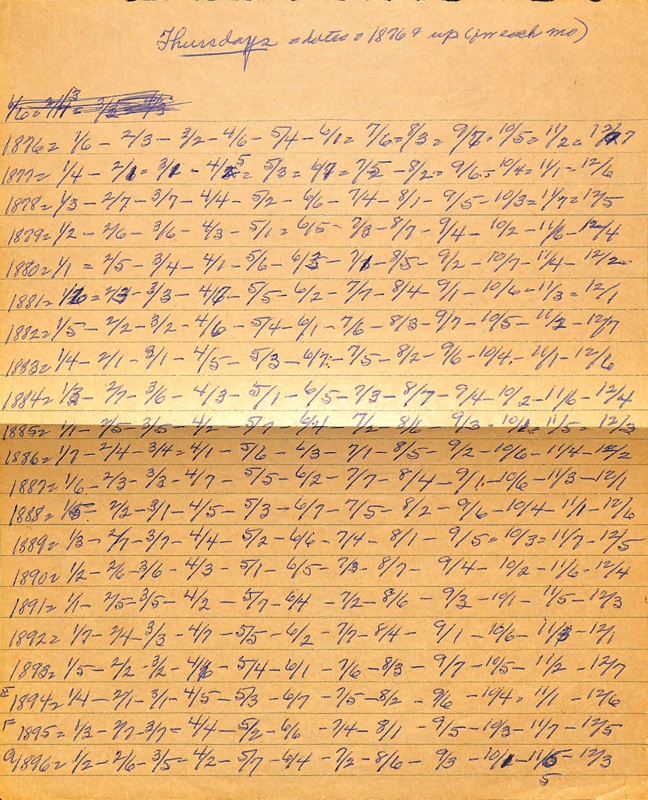 Thursdays = dates = 1876 & up (in each mo)
1876= 1/6 - 2/3 - 3/2 - 4/6 - 5/4 - 6/1= 7/6= 8/3= 9/7= 10/5= 11/2= 12/7
1877= 1/4 - 2/1= 3/1 - 4/5= 5/3= 6/7= 7/5 - 8/2= 9/6= 10/4= 11/1- 12/6
1878= 1/3 - 2/7 - 3/7 - 4/4 - 5/2 - 6/6 - 7/4 - 8/1 - 9/5 - 10/3= 11/7= 12/5
1879= 1/2 - 2/6 - 3/6 - 4/3 - 5/1= 6/5 - 7/3 - 8/7 - 9/4 - 10/2 - 11/6 - 12/4
1880= 1/1 = 2/5 - 3/4 - 4/1 - 5/6 - 6/3 - 7/1 - 8/5 - 9/2 - 10/7 - 11/4 - 12/2
1881= 1/6 = 2/3 - 3/3 - 4/7 - 5/5 - 6/2 - 7/7 - 8/4 - 9/1 - 10/6 - 11/3 = 12/1
1882= 1/5 - 2/2 - 3/2 - 4/6 - 5/4 - 6/1 - 7/6 - 8/3 - 9/7 - 10/5 - 11/2 - 12/7
1883= 1/4 - 2/1 - 3/1 - 4/5 - 5/3 - 6/7 - 7/5 - 8/2 - 9/6 - 10/4 - 11/1 - 12/6
1884= 1/3 - 2/7 - 3/6 - 4/3 - 5/1 - 6/5 - 7/3 - 8/7 - 9/4 - 10/2 - 11/6 - 12/4
1885= 1/1 - 2/5 - 3/5 - 4/2 - 5/7 - 6/4 - 7/2 - 8/6 - 9/3 - 10/1= 11/5 = 12/3
1886= 1/7 - 2/4 - 3/4= 4/1 - 5/6 - 6/3 - 7/1 - 8/5 - 9/2 - 10/6 - 11/4 - 12/2
1887= 1/6 - 2/3 - 3/3 - 4/7 - 5/5 - 6/2 - 7/7 - 8/4 - 9/1 - 10/6 - 11/3 - 12/1
1888= 1/5= 2/2 - 3/1 - 4/5 - 5/3 - 6/7 - 7/5 - 8/2 - 9/6 - 10/4 - 11/1 - 12/6
1889= 1/3 - 2/7 - 3/7 - 4/4 - 5/2 - 6/6 - 7/4 - 8/1 - 9/5= 10/3= 11/7 - 12/5
1890= 1/2 - 2/6 - 3/6 - 4/3 - 5/1 - 6/5 - 7/3 - 8/7 - 9/4 - 10/2 - 11/6 - 12/4
1891= 1/1 - 2/5 - 3/5 - 4/2 - 5/7 - 6/4 - 7/2 - 8/6 - 9/3 - 10/1 - 11/5 - 12/3
1892= 1/7 - 2/4 - 3/3 - 4/7 - 5/5 - 6/2 - 7/7 - 8/4 - 9/1 - 10/6 - 11/3 - 12/1
1893= 1/5 - 2/2 - 3/2 - 4/6 - 5/4 - 6/1 - 7/6 - 8/3 - 9/7 - 10/5 - 11/2 - 12/7
E 1894= 1/4 - 2/1 - 3/1 - 4/5 - 5/3 - 6/7 - 7/5 - 8/2 - 9/6 - 10/4= 11/1 - 12/6
F 1895= 1/3 - 2/7 - 3/7= 4/4 - 5/2 - 6/6 - 7/4 - 8/1 - 9/5 - 10/3 - 11/7 - 12/5
1896= 1/2 - 2/6 - 3/5= 4/2 - 5/7 - 6/4 - 7/2 - 8/6 - 9/3 - 10/1 - 11/5 - 12/3
5